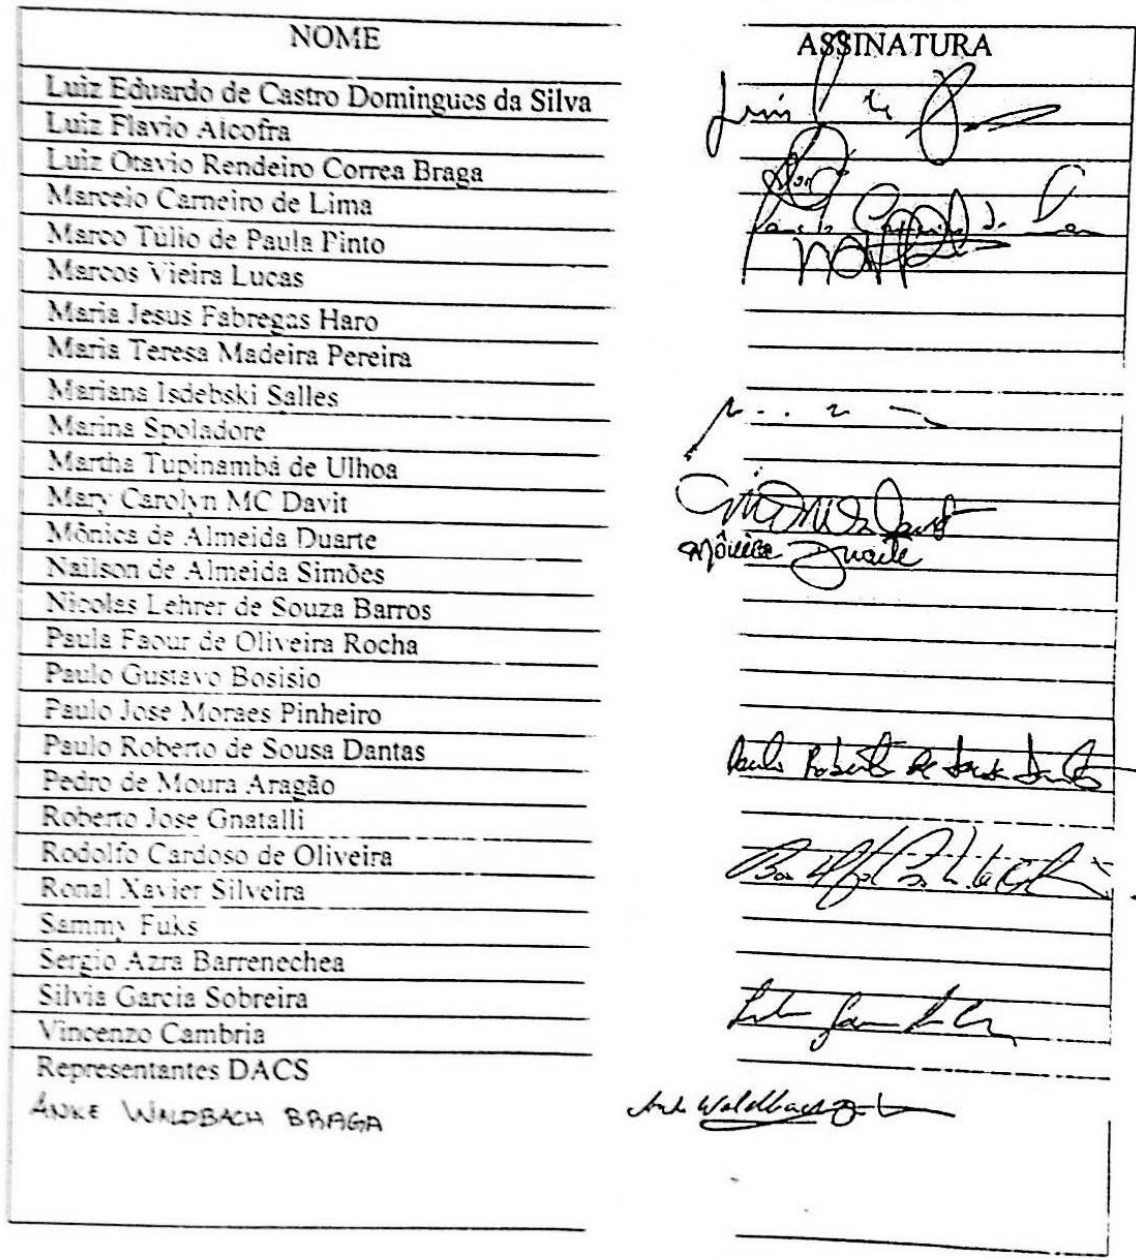 NOME ASSINATURA
Luiz Eduardo de Castro Domingues da Silva
Luiz Flavio Alcofra
Luiz Otavio Rendeiro Correa Braga
Marcelo Carneiro de Lima
Marco Túlio de Paula Pinto
Marcos Vieira Lucas
Maria Jesus Fabregas Haro
Maria Teresa Madeira Pereira
Mariana Isdebski Salles
Marina Spoladore
Martha Tupinambá de Ulhoa
Mary Carolyn MC Davit
Mônica de Almeida Duarte Mônica Duarte
Nailson de Almeida Simões
Nicolas Lehrer de Souza Barros
Paula Faour de Oliveira Rocha
Paulo Gustavo Bosisio
Paulo Jose Moraes Pinheiro
Paulo Roberto de Sousa Dantas Paulo Roberto de Sousa Dantas
Pedro de Moura Aragão
Roberto Jose Gnatalli
Rodolfo Cardoso de Oliveira
Ronal Xavier Silveira
Sammy Fuks
Sergio Azra Barrenechea
Silvia Garcia Sobreira
Vincenzo Cambria
Representantes DACS
ANKE WALDBACH BRAGA Waldbach